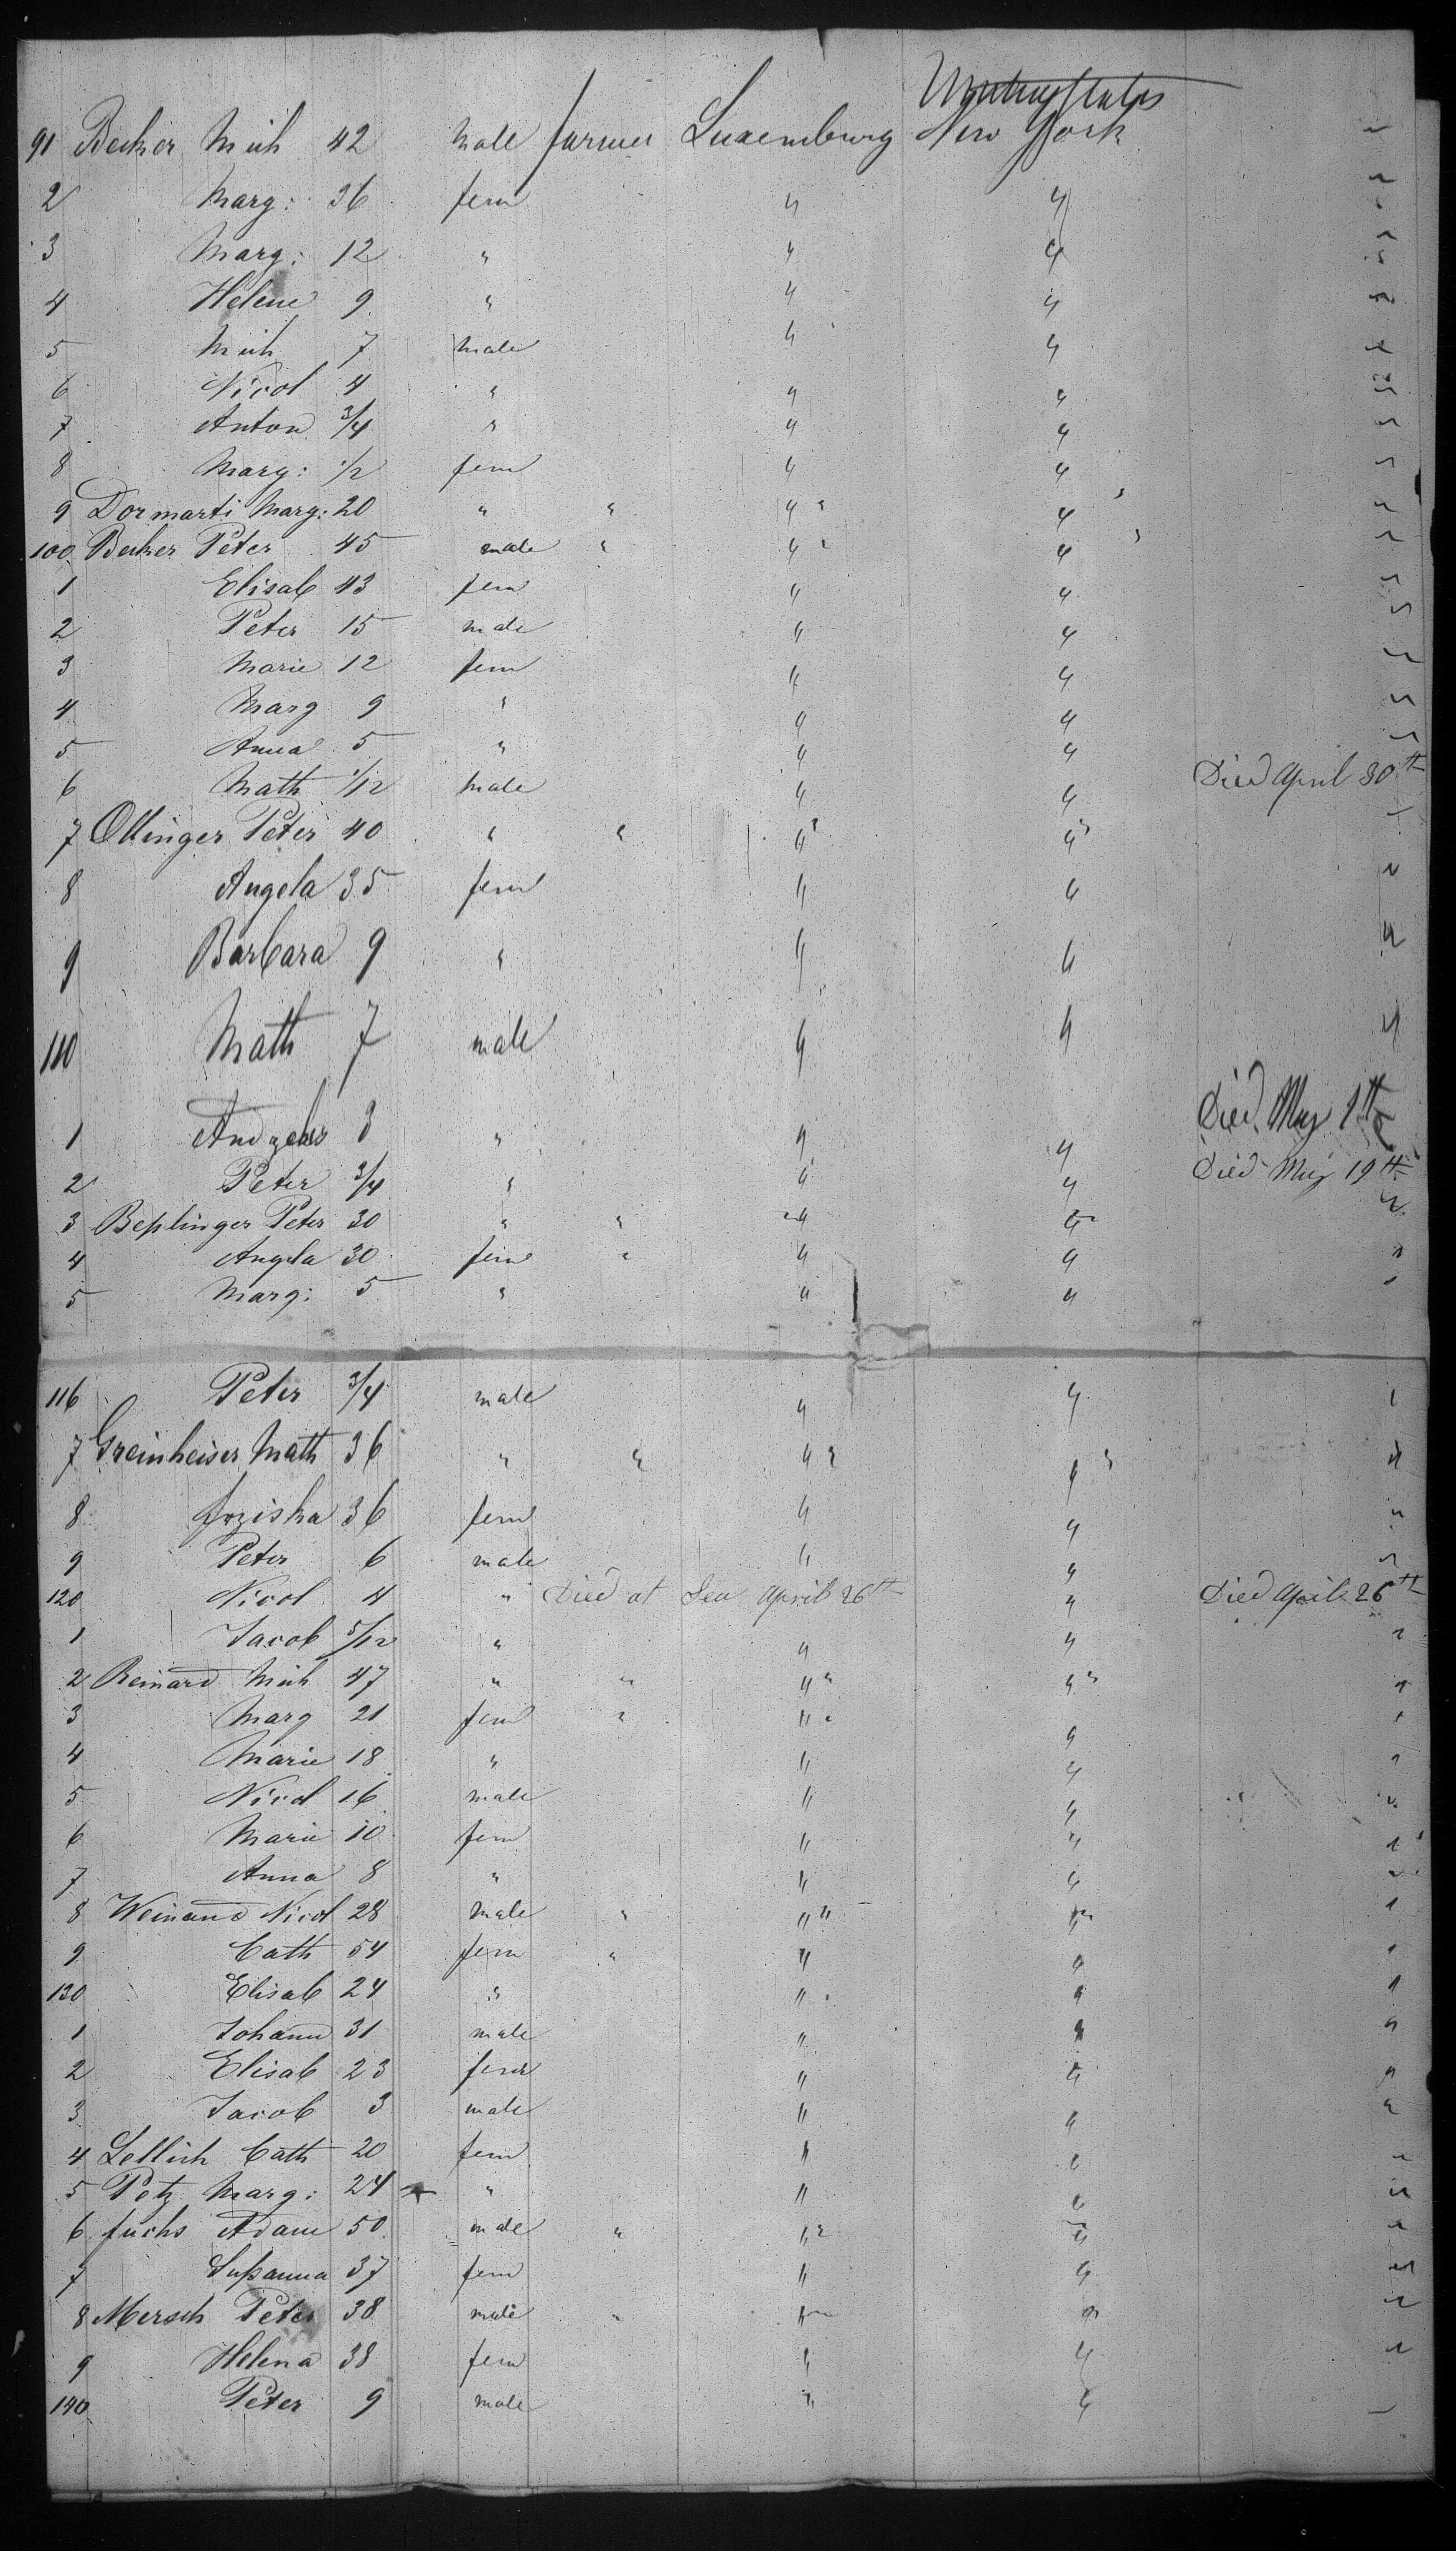 United States
91 Becker Mich 42 male farmer Luxemburg New York "
2 Marg: 36 fem " " "
3 Marg: 12 " " " "
4 Helene 9 " " " "
5 Mich 7 male " " "
6 Nicol 4 " " " "
7 Anton 3/4 " " " "
8 Marg: 1/2 fem " " "
9 Dormarti Marg: 20 " " " " "
100 Becker Peter 45 male " " " "
1 Elisab 43 fem " " "
2 Peter 15 male " " "
3 Marie 12 fem " " "
4 Marg 9 " " " "
5 Anna 5 " " " "
6 Math 1/12 male " " Died April 30th
7 Ollinger Peter 40 " " " " "
8 Angela 35 fem " " "
9 Barbara 9 " " " "
110 Math 7 male " " "
1 3 " " " Died May 1th
2 Peter 3/4 " " " Died May 19th
3 Beplinger Peter 30 " " " " "
4 Angela 30 fem " " " "
5 Marg: 5 " " " "
116 Peter 3/4 male " " "
7 Greinheiser Math 36 " " " " "
8 36 fem " " "
9 Peter 6 male " " "
120 Nicol 4 " Died at Sea April 26th " Died April 26th
1 Jacob 5/12 " " " "
2 Reinard Mich 47 " " " " "
3 Marg 21 fem " " " "
4 Marie 18 " " " "
5 Nicol 16 male " " "
6 Marie 10 fem " " "
7 Anna 8 " " " "
8 Weinand Nicol 28 male " " " "
9 Cath 54 fem " " " "
130 Elisab 24 " " " "
1 Johann 31 male " " "
2 Elisab 23 fem " " "
3 Jacob 3 male " " "
4 Lellich Cath 20 fem " " "
5 Petz Marg: 24 " " " "
6 fuchs Adam 50 male " " " "
7 Sußanna 37 fem " " "
8 Mersch Peter 38 male " " " "
9 Helena 38 fem " " "
140 Peter 9 male " "